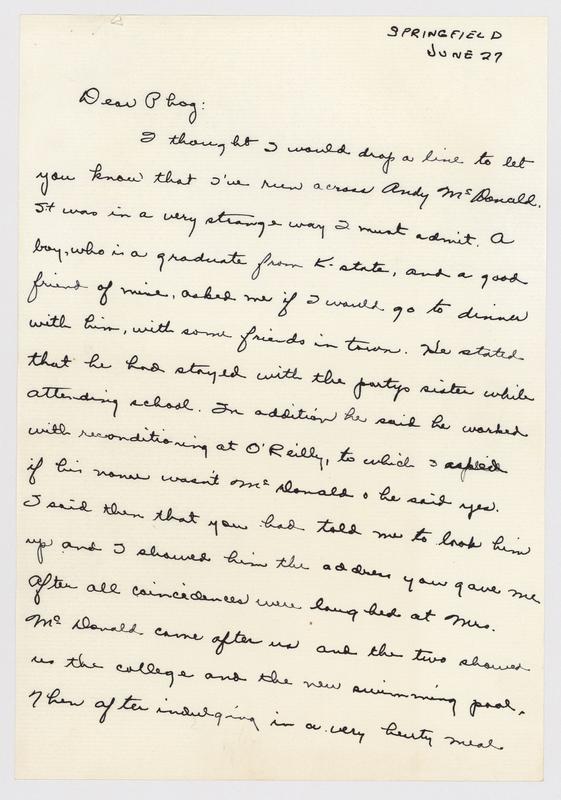 SPRINGFIELD
JUNE 27
Dear Phog:
I thought I would drop a line to let
you know that I've run across Andy McDonald.
It was in a very strange way I must admit. A
boy, who is a graduate from K-state, and a good
friend of mine, asked me if I would go to dinner
with him, with some friends in town. He stated
that he had stayed with the partys sister while
attending school. In addition he said he worked
with reconditioning at O'Reilly, to which I asked
if his name wasn't McDonald & he said yes.
I said then that you had told me to look him
up and I showed him the address you gave me
After all coincedences were laughed at Mrs.
McDonald came after us and the two showed
us the college and the new swimming pool.
Then after indulging in a very hearty meal